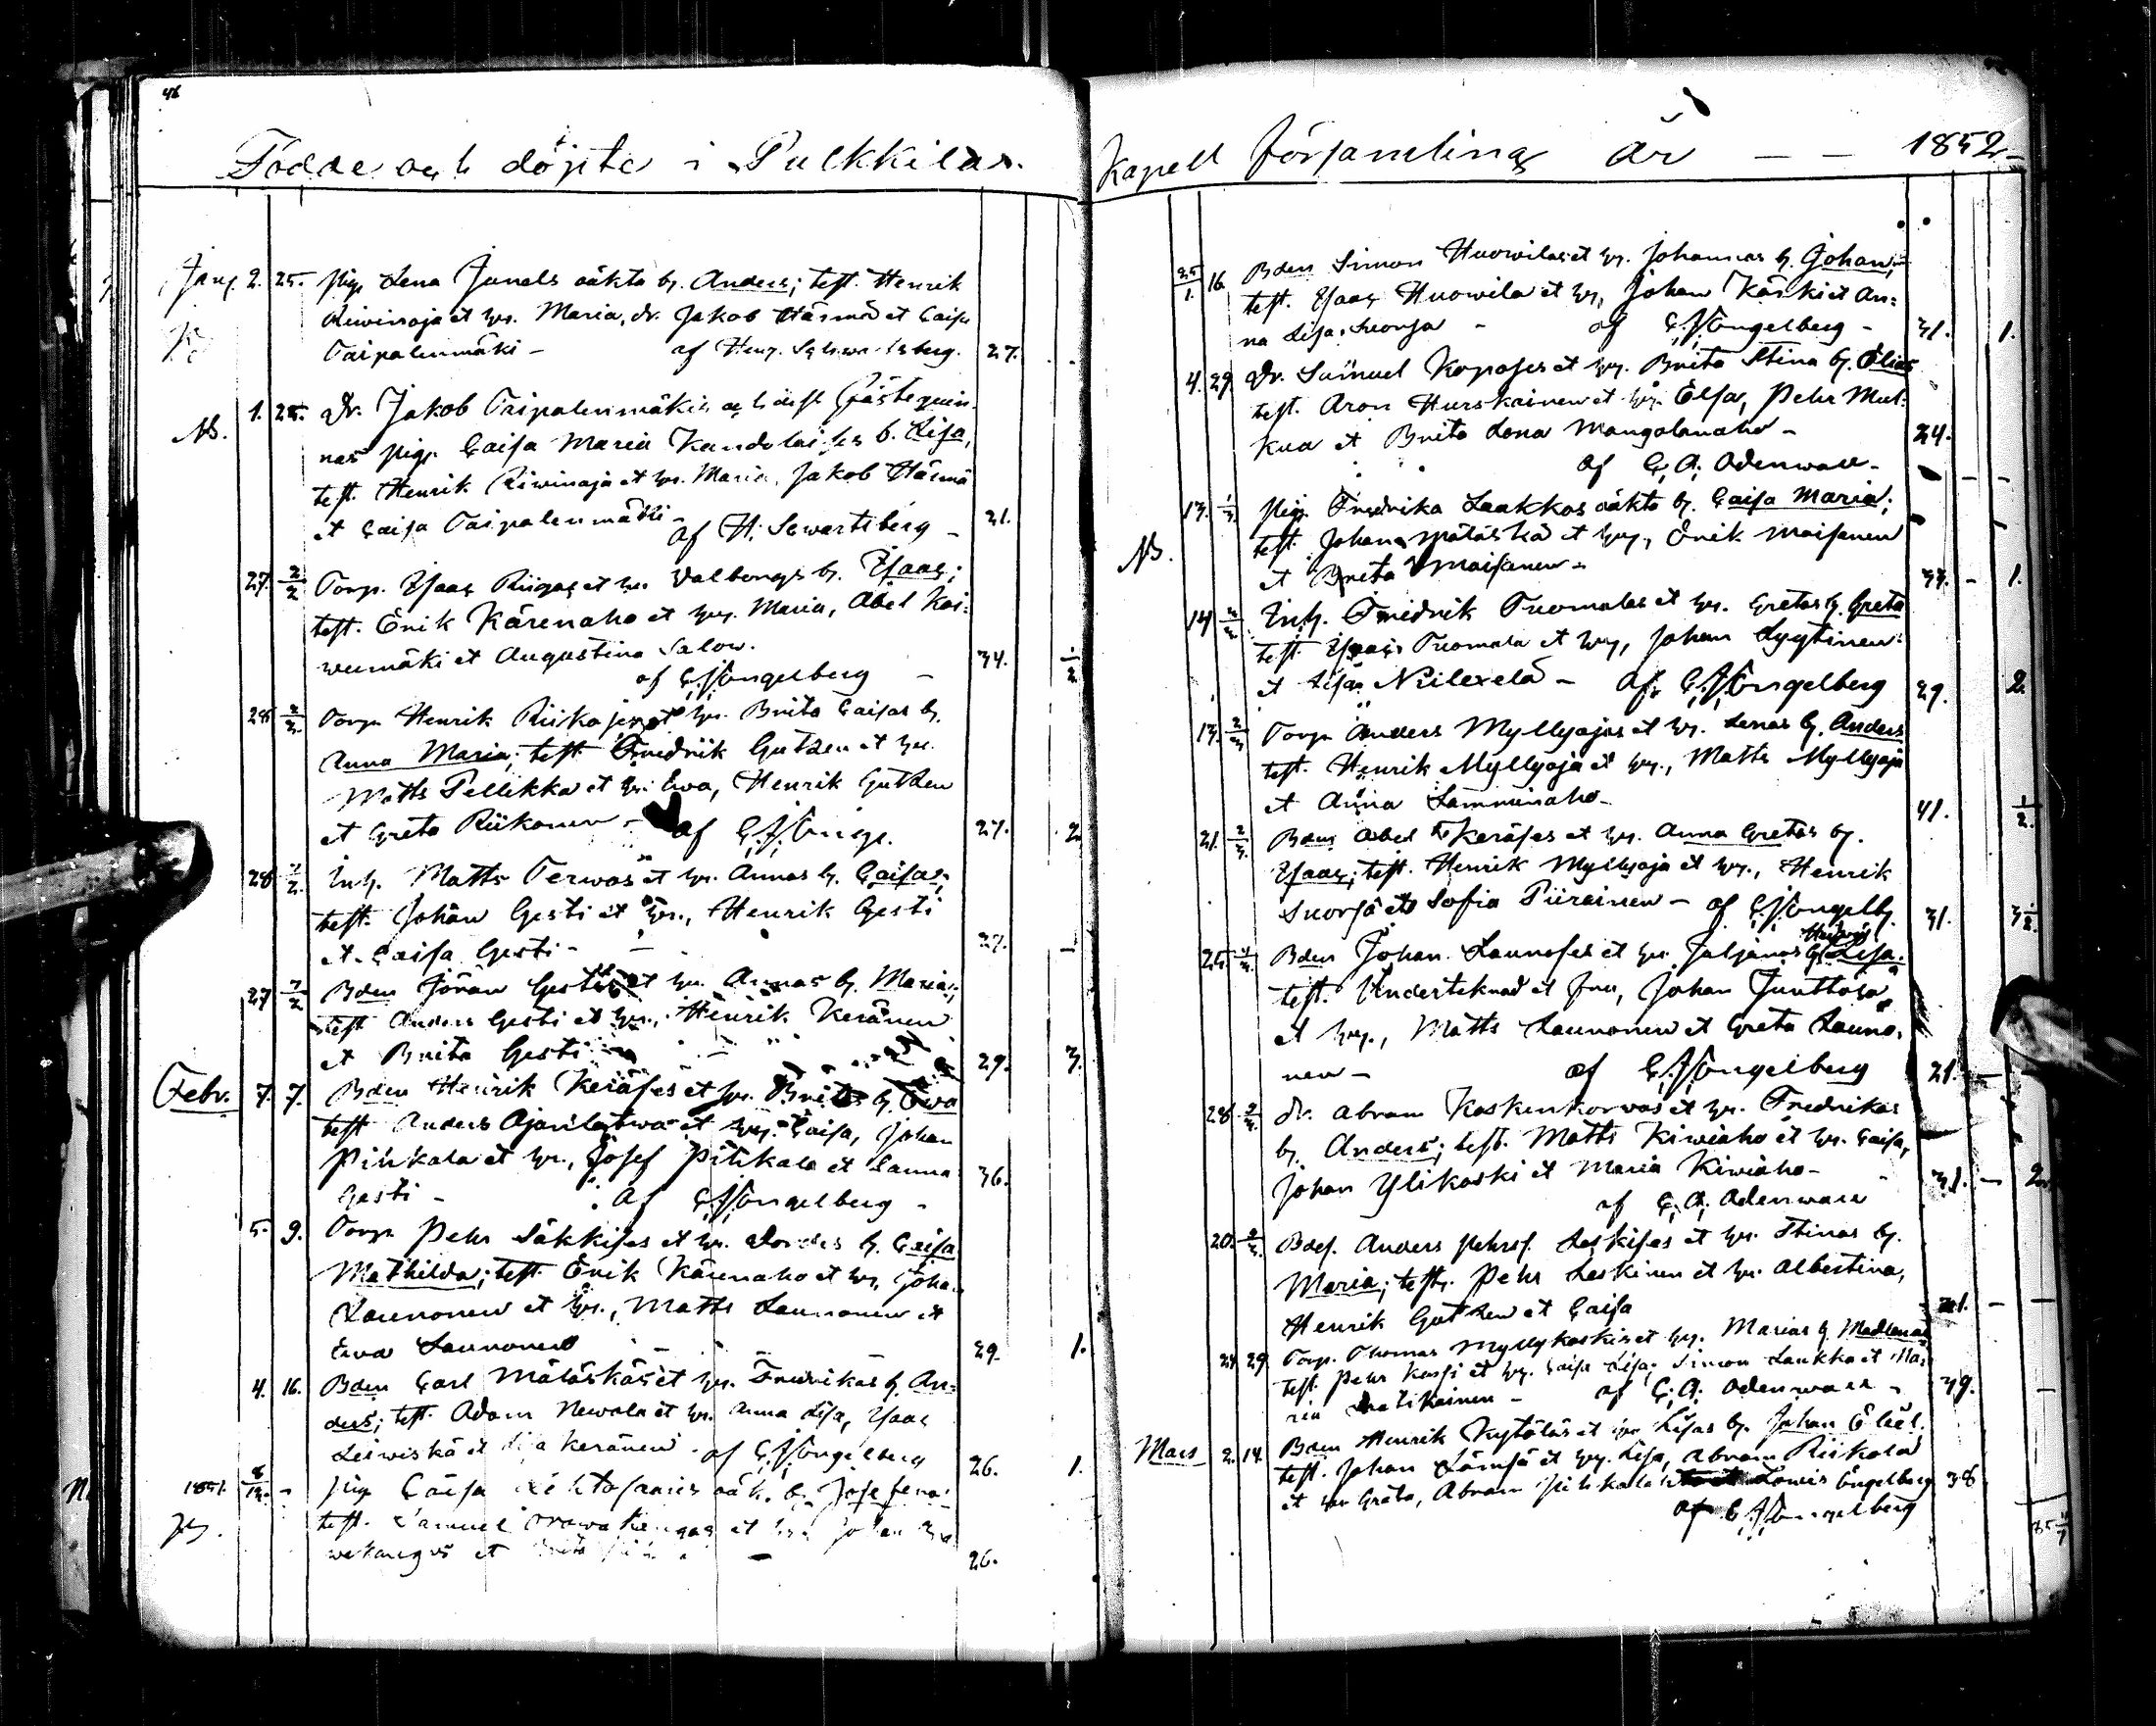 46
Födde och döpte i Pulkkila
Janr. 2. 25. Pig. Lena Junels oäkta b. Anders; test. Henrik
Kiwinoja et hr. Maria, dr. Jakob Härmä et Caisa
Taipalenmäki – af Henr. Schwartsberg. 27.
NB. 1. 25. Dr. Jakob Taipalenmäkis och
nas pig. Caisa Maria b. Lisa,
test. Henrik Kiwinoja et hr. Maria, Jakob Härmä
et Caisa Taipalenmäki – af H. Swartsberg – 21.
27. 2/2 Torp. Isaac et hr. Walborgs b. Isaac;
test. Erik Kärenaho et hr. Maria, Abel Koi=
wumäki et Augustina Salow.
af C.J. Engelberg – 34. 1/2
28 2/2 Torp. Henrik et hr. Brita Caisas b.
Anna Maria; test. Fredrik Gutzen et hr.
Matts Pellikka et hr. Ewa, Henrik Gutzen
et Greta Riikonen – af C.J. Enge. 27. 2
28 Inh. Matts Terwas et hr. Annas b. Caisa;
test. Johan Gesti et hr., Henrik Gesti
et Caisa Gesti – 27. –
27 Bden Jöran et hr. Annas b. Maria;
test Anders Gesti et hr., Henrik Keränen
et Brita Gesti 29. 3.
Febr. 7. 7. Bden Henrik Keräses et hr. Britas b. Ewa
test Anders Ajanlatwa et hr. Caisa, Johan
Pihkala et hr., Josef Pihkala et Sanna
Gesti – af C.J. Engelberg – 36.
5. 9. Torp. Pehr Säkkises et hr. b. Caisa
Mathilda; test. Erik Kärenaho et hr, Joha
Launonen et hr., Matts Launonen et
Ewa Launonen 29. 1.
4. 16. Bden Carl Mätäskäs et hr. Fredrikas b. An=
ders; test. Adam Newala et hr. Anna Lisa, Isaac
Leiwiskä et Keränen – af C.J. Engelberg 26. 1.
1851. Pig. Caisa oäk. b. Josefina
test. Samuel et hr. Johan
et 26.
Kapell Församling år – – 1852 –
25/1. 16. Bden Simon Huowilas et hr. Johannas b. Johan;
test. Isaac Huowila et hr, Johan Kärki et An=
na Lisa Suorsa – af C.J. Engelberg – 31. 1.
4. 29 Dr. Samuel Koposes et hr. Brita Stina b. Elias
test. Aron Hurskainen et hr. Elsa, Pehr Mul=
kua et Brita Lena Mangolanaho – 24.
af C.A. Odenwall –
NB. 13. Pig. Fredrika Laakkos oäkta b. Caisa Maria;
test. Johan Mätäskä et hr., Erik Maisanen
et Brita Maisanen – 33. – 1.
14 Inh. Fredrik Tuomalas et hr. Gretas b. Greta
test Isaac Tuomala et hr, Johan Lyytinen
et Lisa Niilexelä – af C.J. Engelberg 29. 2
13. Torp. Anders Myllyojas et hr. Lenas b. Anders
test. Henrik Myllyoja et hr., Matts Myllyoja
et Anna Lamminaho – 41. 1/2.
21. Bden Abel Keräses et hr. Anna Gretas b.
Isaac; test. Henrik Myllyoja et hr., Henrik
Suorsa et Sofia Piirainen – af C.J. Engelb. 31. 3 1/2
Hedvig
25. Bden Johan Launoses et hr. Juljanas b. Lisa.
test. Underteknad et fru, Johan Junttola
et hr., Matts Launonen et Greta Launo,
nen – af C.J. Engelberg 21. –
28 Dr. Abram Koskenkorwas et hr. Fredrikas
b. Anders; test. Matts Kiwiaho et hr. Caisa,
Johan Ylikoski et Maria Kiwiaho – 31. – 2
af C.A. Odenwall
20. Bdes. Anders Pehrs. Leskises et hr. Stinas b.
Maria; test. Pehr Leskinen et hr. Albertina,
Henrik Gutzen et Caisa 21. – –
24 29 Torp. Thomas Myllykoskis et hr. Marias b. Madlena
test. Pehr Kassi et hr. Caisa Lisa, Simon Laukka et Ma=
ria – af C.A. Odenwall – 39. –
Mars 2. 14. Bden Henrik Kytöläs et hr. Lisas b. Johan Eliel.
test. Johan Lämsä et hr. Lisa, Abram Riikola
et hr Greta, Abram Pihkala Lowis Engelberg 38
af C.J. Engelberg